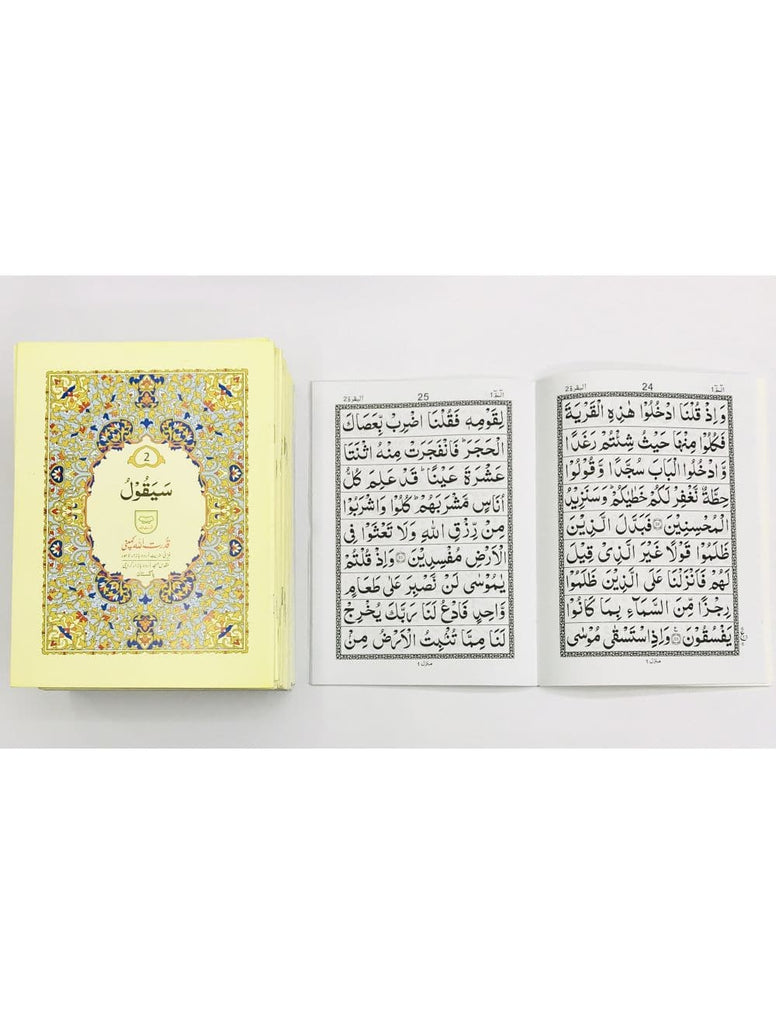 2
سَيَقُوْلُ
قدرت اللہ کمپنی
پاکستان
الٓمّٓ ١
24
البقرة ٢
وَاِذْ قُلْنَا ادْخُلُوْا هٰذِهِ الْقَرْيَةَ
فَكُلُوْا مِنْهَا حَيْثُ شِئْتُمْ رَغَدًا
وَّادْخُلُوا الْبَابَ سُجَّدًا وَّقُوْلُوْا
حِطَّةٌ نَّغْفِرْ لَكُمْ خَطٰيٰكُمْ ؕ وَسَنَزِيْدُ
الْمُحْسِنِيْنَ ۝ فَبَدَّلَ الَّذِيْنَ
ظَلَمُوْا قَوْلًا غَيْرَ الَّذِيْ قِيْلَ
لَهُمْ فَاَنْزَلْنَا عَلَى الَّذِيْنَ ظَلَمُوْا
رِجْزًا مِّنَ السَّمَآءِ بِمَا كَانُوْا
يَفْسُقُوْنَ ۝ وَاِذِ اسْتَسْقٰى مُوْسٰى
منزل ١
الٓمّٓ ١
25
البقرة ٢
لِقَوْمِهٖ فَقُلْنَا اضْرِبْ بِّعَصَاكَ
الْحَجَرَ ؕ فَانْفَجَرَتْ مِنْهُ اثْنَتَا
عَشْرَةَ عَيْنًا ؕ قَدْ عَلِمَ كُلُّ
اُنَاسٍ مَّشْرَبَهُمْ ؕ كُلُوْا وَاشْرَبُوْا
مِنْ رِّزْقِ اللّٰهِ وَلَا تَعْثَوْا فِى
الْاَرْضِ مُفْسِدِيْنَ ۝ وَاِذْ قُلْتُمْ
يٰمُوْسٰى لَنْ نَّصْبِرَ عَلٰى طَعَامٍ
وَّاحِدٍ فَادْعُ لَنَا رَبَّكَ يُخْرِجْ
لَنَا مِمَّا تُنْۢبِتُ الْاَرْضُ مِنْۢ
منزل ١